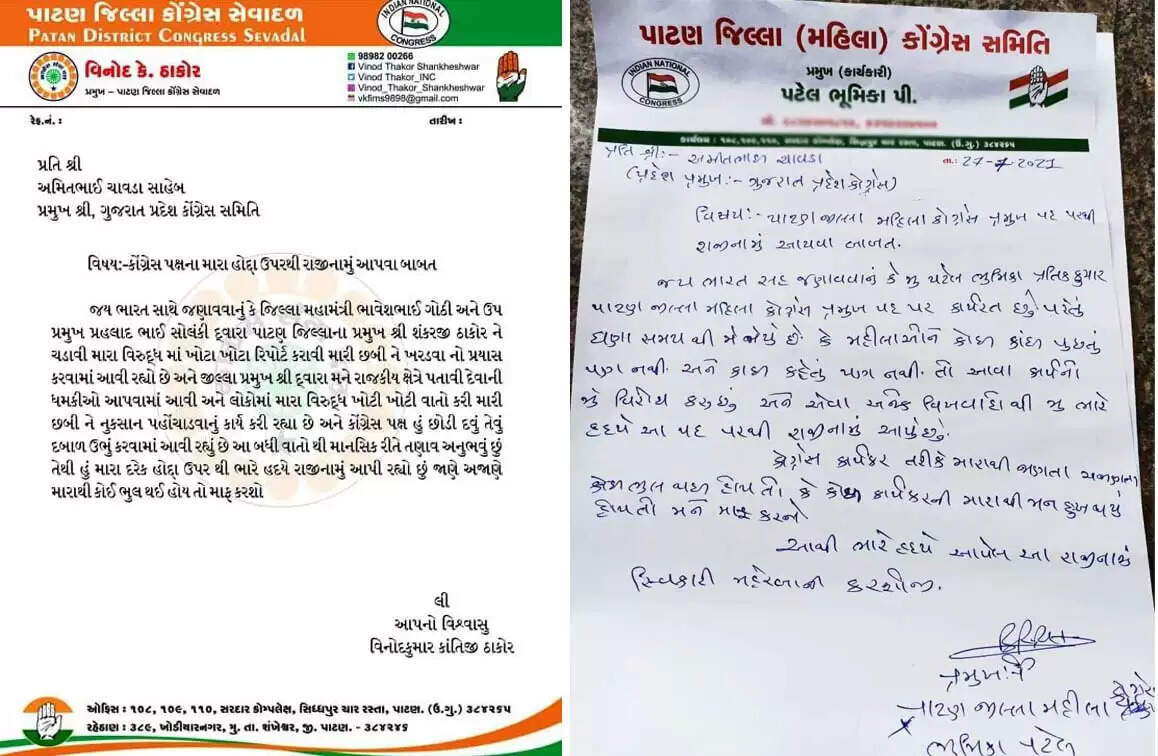 પાટણ જિલ્લા કોંગ્રેસ સેવાદળ
PATAN DISTRICT CONGRESS SEVADAL
INDIAN NATIONAL
CONGRESS
વિનોદ કે. ઠાકોર
પ્રમુખ – પાટણ જિલ્લા કોંગ્રેસ સેવાદળ
98982 00266
Vinod Thakor Shankheshwar
Vinod Thakor_INC
Vinod_Thakor_Shankheshwar
vkfims9898@gmail.com
રેફ.નં. :
તારીખ :
પ્રતિ શ્રી
અમિતભાઈ ચાવડા સાહેબ
પ્રમુખ શ્રી, ગુજરાત પ્રદેશ કોંગ્રેસ સમિતિ
વિષય:-કોંગ્રેસ પક્ષના મારા હોદ્દા ઉપરથી રાજીનામું આપવા બાબત
જય ભારત સાથે જણાવવાનું કે જિલ્લા મહામંત્રી ભાવેશભાઈ ગોઠી અને ઉપ
પ્રમુખ પ્રહલાદ ભાઈ સોલંકી દ્વારા પાટણ જિલ્લાના પ્રમુખ શ્રી શંકરજી ઠાકોર ને
ચડાવી મારા વિરુદ્ધ માં ખોટા ખોટા રિપોર્ટ કરાવી મારી છબી ને ખરડવા નો પ્રયાસ
કરવામાં આવી રહ્યો છે અને જીલ્લા પ્રમુખ શ્રી દ્વારા મને રાજકીય ક્ષેત્રે પતાવી દેવાની
ધમકીઓ આપવામાં આવી અને લોકોમાં મારા વિરુદ્ધ ખોટી ખોટી વાતો કરી મારી
છબી ને નુકસાન પહોંચાડવાનું કાર્ય કરી રહ્યા છે અને કોંગ્રેસ પક્ષ હું છોડી દવું તેવું
દબાળ ઉભું કરવામાં આવી રહ્યું છે આ બધી વાતો થી માનસિક રીતે તણાવ અનુભવું છું
તેથી હું મારા દરેક હોદ્દા ઉપર થી ભારે હ્રદયે રાજીનામું આપી રહ્યો છું જાણે અજાણે
મારાથી કોઈ ભુલ થઈ હોય તો માફ કરશો
લી
આપનો વિશ્વાસુ
વિનોદકુમાર કાંતિજી ઠાકોર
ઓફિસ : ૧૦૮, ૧૦૯, ૧૧૦, સરદાર કોમ્પલેક્ષ, સિધ્ધપુર ચાર રસ્તા, પાટણ. (ઉ.ગુ.) ૩૮૪૨૬૫
રહેઠાણ : ૩૮૯, ખોડીયારનગર, મુ. તા. શંખેશ્વર, જી. પાટણ. - ૩૮૪૨૪૬
પાટણ જિલ્લા (મહિલા) કોંગ્રેસ સમિતિ
પ્રમુખ (કાર્યકારી)
પટેલ ભૂમિકા પી.
INDIAN NATIONAL
CONGRESS
કાર્યાલય : ૧૦૮,૧૦૯,૧૧૦, સરદાર કોમ્પલેક્ષ, સિધ્ધપુર ચાર રસ્તા, પાટણ. (ઉ.ગુ.) ૩૮૪૨૬૫
પ્રતિ શ્રી:- અમીતભાઇ ચાવડા
તા.: 27-7-2021
(પ્રદેશ પ્રમુખ:- ગુજરાત પ્રદેશ કોંગ્રેસ)
વિષય:- પાટણ જીલ્લા મહિલા કોંગ્રેસ પ્રમુખ પદ પરથી
રાજીનામું આપવા બાબત.
જય ભારત સહ જણાવવાનું કે હુ પટેલ ભુમિકા પ્રતિકકુમાર
પાટણ જીલ્લા મહિલા કોંગ્રેસ પ્રમુખ પદ પર કાર્યરત છું પરંતુ
ઘણા સમય થી મે જોયું છે કે મહીલાઓને કોઇ કાંઇ પુછતું
પણ નથી. અને કાંઇ કહેતું પણ નથી. તો આવા કાર્યનો
હું વિરોધ કરુ છું અને એવા અનેક વિખવાદો થી હુ ભારે
હૃદયે આ પદ પરથી રાજીનામું આપું છું.
કોંગ્રેસ કાર્યકર તરીકે મારાથી જાણતા અજાણતા
કોઇ ભુલ થઇ હોય તો કે કોઇ કાર્યકરની મારાથી મન દુખ થયું
હોય તો મને માફ કરજો
આથી ભારે હૃદયે આપેલ આ રાજીનામું
સ્વિકારી મહેરબાની કરશોજી.
પ્રમુખશ્રી
પાટણ જીલ્લા મહીલા કોંગ્રેસ
ભુમિકા પટેલ